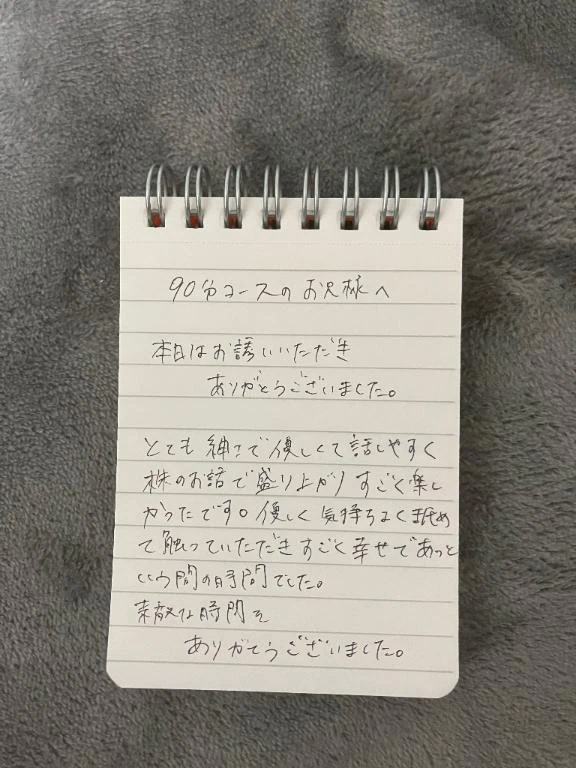 90分コースのお兄様へ
本日はお誘いいただき
ありがとうございました。
とても紳士で優しくて話しやすく
株のお話で盛り上がりすごく楽し
かったです。優しく気持ちよく舐め
て触っていただきすごく幸せであっと
いう間の時間でした。
素敵な時間を
ありがとうございました。